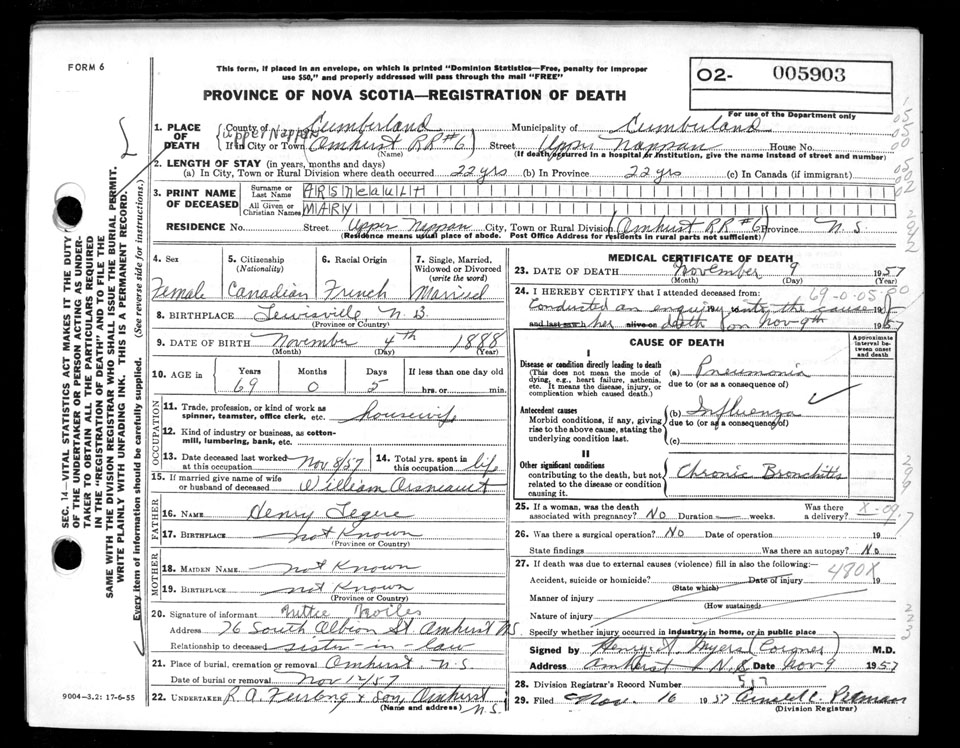 FORM 6
This form, if placed in an envelope, on which is printed "Dominion Statistics—Free, penalty for improper
use $50," and properly addressed will pass through the mail "FREE"
PROVINCE OF NOVA SCOTIA—REGISTRATION OF DEATH
O2- 005903
For use of the Department only
1. PLACE OF DEATH County of Cumberland Municipality of Cumberland
Upper Nappan If in City or Town Amhurst RR #6 (Name) Street Upper Nappan House No.
(If death occurred in a hospital or institution, give the name instead of street and number)
2. LENGTH OF STAY (in years, months and days)
(a) In City, Town or Rural Division where death occurred 22 yrs (b) In Province 22 yrs (c) In Canada (if immigrant)
3. PRINT NAME OF DECEASED Surname or Last Name ARSNEAULT
All Given or Christian Names MARY
RESIDENCE No. Street Upper Nappan City, Town or Rural Division Amhurst RR #6 Province N.S.
(Residence means usual place of abode. Post Office Address for residents in rural parts not sufficient)
4. Sex Female
5. Citizenship (Nationality) Canadian
6. Racial Origin French
7. Single, Married, Widowed or Divorced (write the word) Married
8. BIRTHPLACE Lewisville, N.B.
(Province or Country)
9. DATE OF BIRTH November 4th 1888
(Month) (Day) (Year)
10. AGE in Years 69 Months 0 Days 5 If less than one day old hrs. or min.
OCCUPATION
11. Trade, profession, or kind of work as spinner, teamster, office clerk, etc. housewife
12. Kind of industry or business, as cotton-mill, lumbering, bank, etc.
13. Date deceased last worked at this occupation Nov 8/57 14. Total yrs. spent in this occupation life
15. If married give name of wife or husband of deceased William Arsneault
FATHER
16. NAME Henry Legere
17. BIRTHPLACE not Known
(Province or Country)
MOTHER
18. MAIDEN NAME not Known
19. BIRTHPLACE not Known
(Province or Country)
20. Signature of informant Noiles
Address 76 South Albion St Amhurst NS
Relationship to deceased sister-in-law
21. Place of burial, cremation or removal Amhurst N.S.
Date of burial or removal Nov 12/57
22. UNDERTAKER R. A. Furlong & Son, Amhurst N.S.
(Name and address)
MEDICAL CERTIFICATE OF DEATH
23. DATE OF DEATH November 9 1957
(Month) (Day) (Year)
24. I HEREBY CERTIFY that I attended deceased from: 69-0-05
Conducted an enquiry into the cause of
and last saw her alive on death on Nov 9th 1957
CAUSE OF DEATH
Approximate interval between onset and death
I
Disease or condition directly leading to death
(This does not mean the mode of dying, e.g., heart failure, asthenia, etc. It means the disease, injury, or complication which caused death.)
(a) Pneumonia
due to (or as a consequence of)
Antecedent causes
Morbid conditions, if any, giving rise to the above cause, stating the underlying condition last.
(b) Influenza
due to (or as a consequence of)
(c)
II
Other significant conditions
contributing to the death, but not related to the disease or condition causing it.
Chronic Bronchitis
25. If a woman, was the death associated with pregnancy? No Duration weeks. Was there a delivery? X-09
26. Was there a surgical operation? No Date of operation 19
State findings Was there an autopsy? No
27. If death was due to external causes (violence) fill in also the following:— 480X
Accident, suicide or homicide? (State which) Date of injury 19
Manner of injury (How sustained)
Nature of injury
Specify whether injury occurred in industry, in home, or in public place
Signed by Henry A. Myers (Coroner) M.D.
Address Amhurst N.S. Date Nov 9 1957
28. Division Registrar's Record Number 517
29. Filed Nov. 16 1957
(Division Registrar)
SEC. 14—VITAL STATISTICS ACT MAKES IT THE DUTY
OF THE UNDERTAKER OR PERSON ACTING AS UNDER-
TAKER TO OBTAIN ALL THE PARTICULARS REQUIRED
IN THE "REGISTRATION OF DEATH" AND TO FILE THE
SAME WITH THE DIVISION REGISTRAR WHO SHALL ISSUE THE BURIAL PERMIT.
WRITE PLAINLY WITH UNFADING INK. THIS IS A PERMANENT RECORD.
Every item of information should be carefully supplied. (See reverse side for instructions.)
9004—3.2: 17-6-55